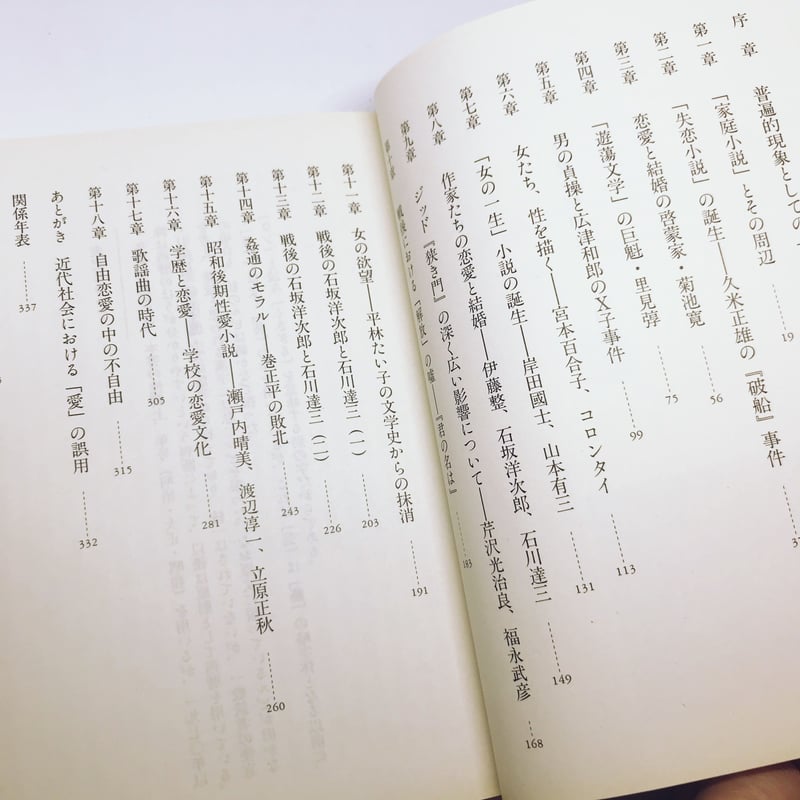 序章 普遍的現象としての
第一章 「家庭小説」とその周辺 19
第二章 「失恋小説」の誕生――久米正雄の『破船』事件
第三章 恋愛と結婚の啓蒙家・菊池寛 56
第四章 「遊蕩文学」の巨魁・里見弴 75
第五章 男の貞操と広津和郎のX子事件 99
第六章 女たち、性を描く――宮本百合子、コロンタイ 113
第七章 「女の一生」小説の誕生――岸田國士、山本有三 131
第八章 作家たちの恋愛と結婚――伊藤整、石坂洋次郎、石川達三 149
第九章 ジッド『狭き門』の深く広い影響について――芹沢光治良、福永武彦 168
第十章 戦後における「解放」の嘘――『君の名は』 183
第十一章 女の欲望――平林たい子の文学史からの抹消 191
第十二章 戦後の石坂洋次郎と石川達三（一） 203
第十三章 戦後の石坂洋次郎と石川達三（二） 226
第十四章 姦通のモラル――巻正平の敗北 243
第十五章 昭和後期性愛小説――瀬戸内晴美、渡辺淳一、立原正秋 260
第十六章 学歴と恋愛――学校の恋愛文化 281
第十七章 歌謡曲の時代 305
第十八章 自由恋愛の中の不自由 315
あとがき 近代社会における「愛」の誤用 332
関係年表 337